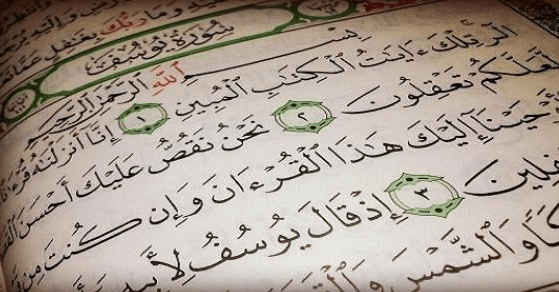 وَمَا رَبُّكَ بِغَٰفِلٍ عَمَّا
سُورَةُ يُوسُفَ
بِسْمِ ٱللَّهِ ٱلرَّحْمَٰنِ ٱلرَّحِيمِ
الٓر تِلْكَ ءَايَٰتُ ٱلْكِتَٰبِ ٱلْمُبِينِ ١ إِنَّآ أَنزَلْنَٰهُ قُرْءَٰنًا
لَّعَلَّكُمْ تَعْقِلُونَ ٢ نَحْنُ نَقُصُّ عَلَيْكَ أَحْسَنَ
أَوْحَيْنَآ إِلَيْكَ هَٰذَا ٱلْقُرْءَانَ وَإِن كُنتَ مِن
ٱلْغَٰفِلِينَ ٣ إِذْ قَالَ يُوسُفُ لِأَبِيهِ
وَٱلشَّمْسَ وَٱلْقَمَرَ